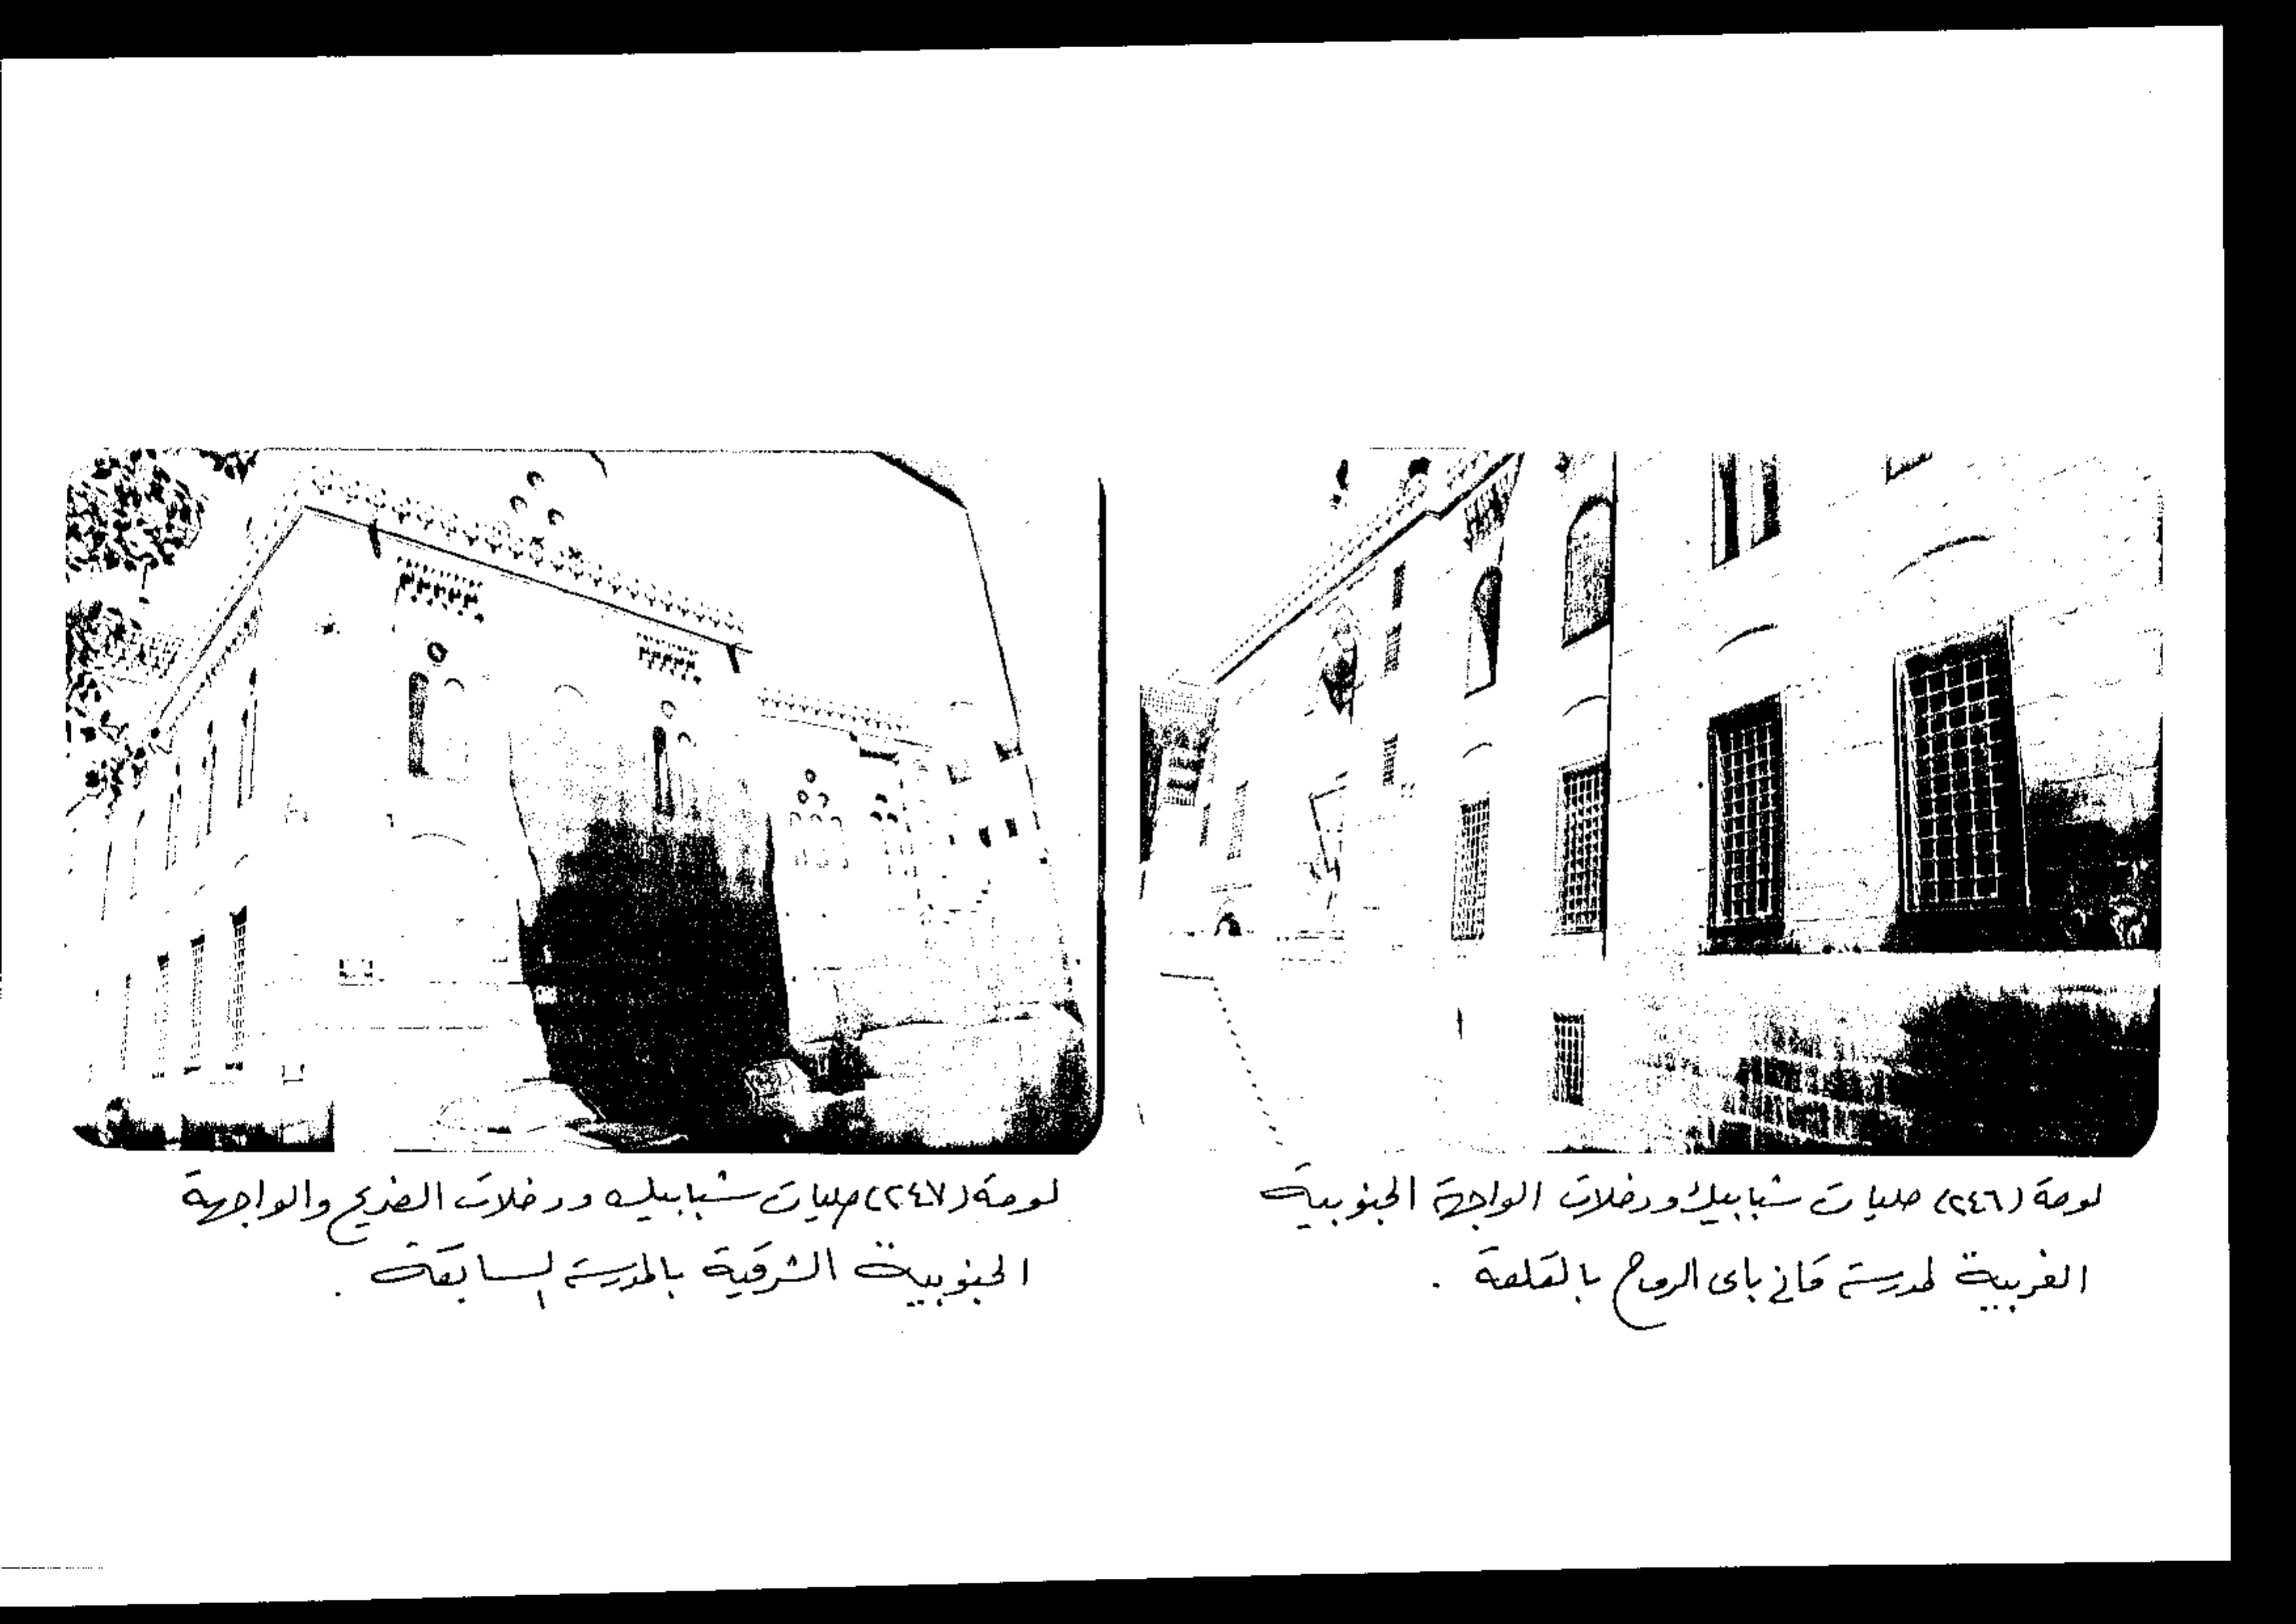 لوحة (٢٤٦) حليات شبابيك ودخلات الواجهة الجنوبية
الغربية لمدرسة قاني باى الرماح بالقلعة .
لوحة (٢٤٧) حليات شبابيك ودخلات الضريح والواجهة
الجنوبية الشرقية بالمدرسة السابقة .